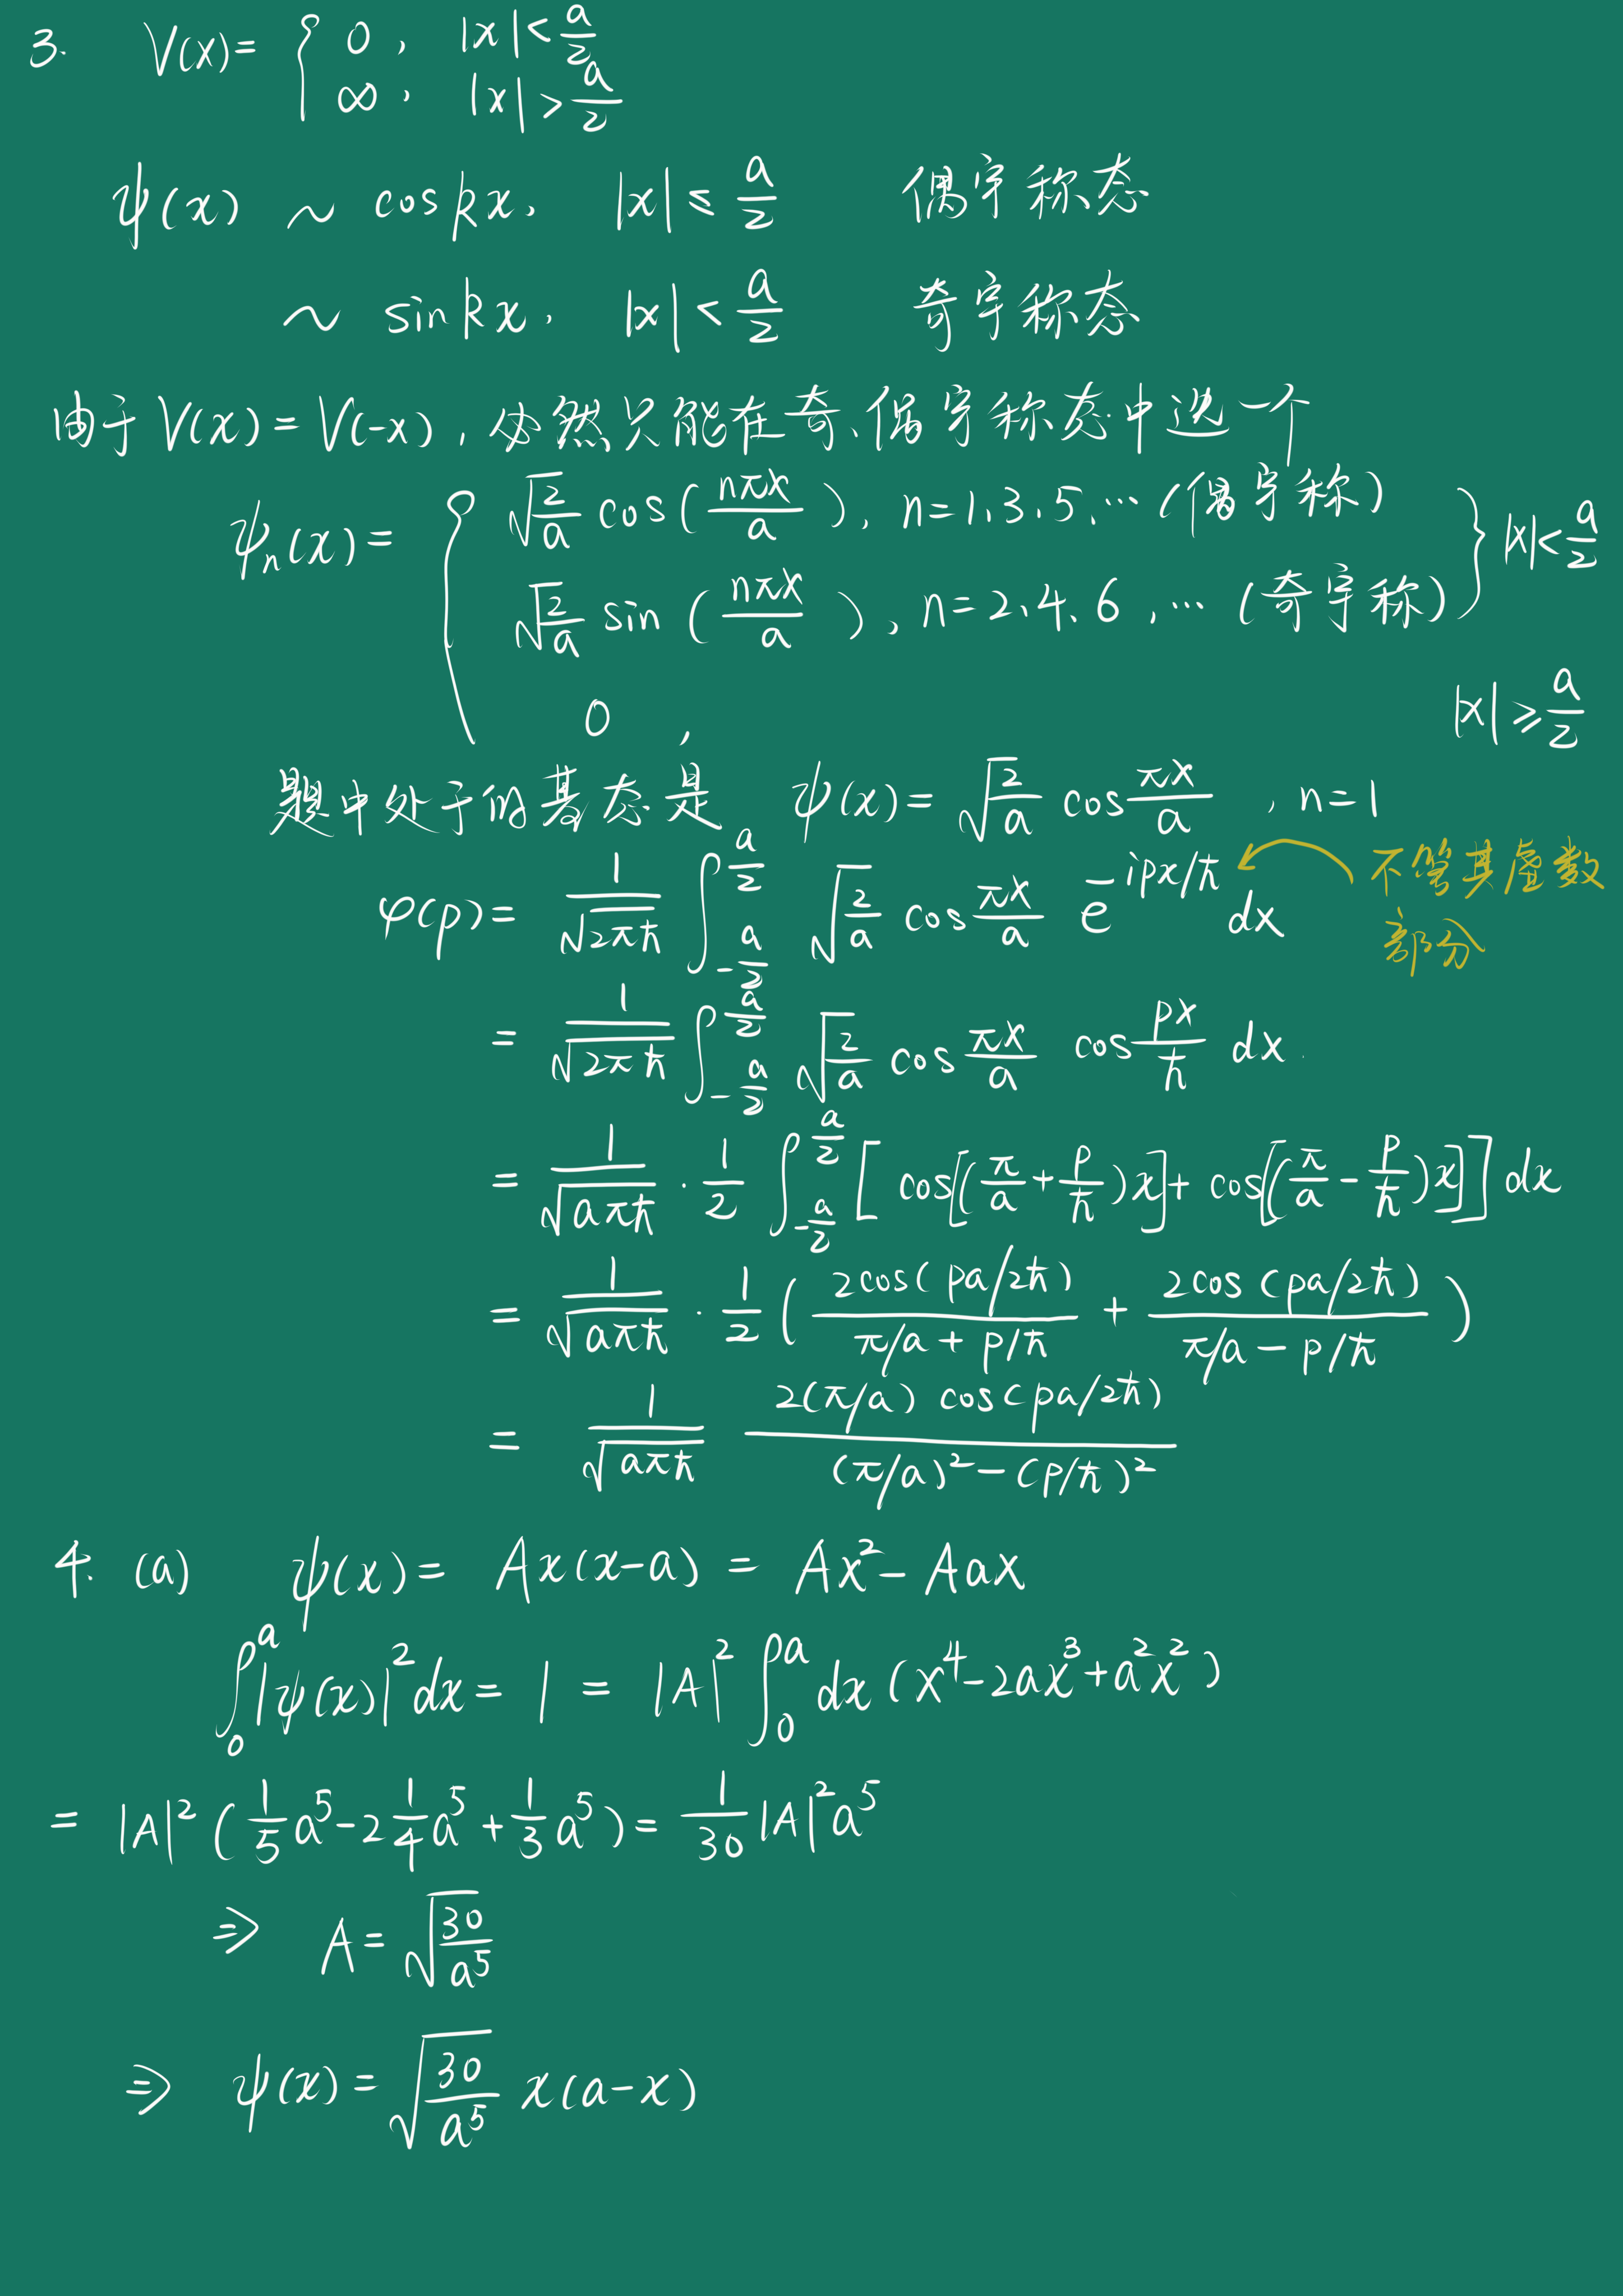 3. V(x)= { 0, |x|<a/2
∞, |x|>a/2
ψ(x) ~ cos kx, |x|≤a/2 偶宇称态
~ sin kx, |x|<a/2 奇宇称态
由于V(x)=V(-x),必然只能在奇、偶宇称态中选一个
ψₙ(x)= { √(2/a) cos(nπx/a), n=1、3、5、… (偶宇称)
√(2/a) sin(nπx/a), n=2、4、6,… (奇宇称) } |x|<a/2
0, |x|≥a/2
题中处于的基态是 ψ(x)=√(2/a) cos πx/a, n=1
φ(p)= 1/√(2πħ) ∫_{-a/2}^{a/2} √(2/a) cos πx/a e^{-ipx/ħ} dx 不管其虚数
部分
= 1/√(2πħ) ∫_{-a/2}^{a/2} √(2/a) cos πx/a cos px/ħ dx
= 1/√(aπħ) · 1/2 ∫_{-a/2}^{a/2} [cos[(π/a + p/ħ)x] + cos[(π/a - p/ħ)x]] dx
= 1/√(aπħ) · 1/2 ( 2cos(pa/2ħ)/(π/a + p/ħ) + 2cos(pa/2ħ)/(π/a - p/ħ) )
= 1/√(aπħ) 2(π/a) cos(pa/2ħ)/((π/a)² - (p/ħ)²)
4. (a) ψ(x)= Ax(x-a) = Ax² - Aax
∫₀ᵃ |ψ(x)|² dx = 1 = |A|² ∫₀ᵃ dx (x⁴-2ax³+a²x²)
= |A|² (1/5 a⁵ - 2 1/4 a⁵ + 1/3 a⁵) = 1/30 |A|² a⁵
⇒ A=√(30/a⁵)
⇒ ψ(x)=√(30/a⁵) x(a-x)